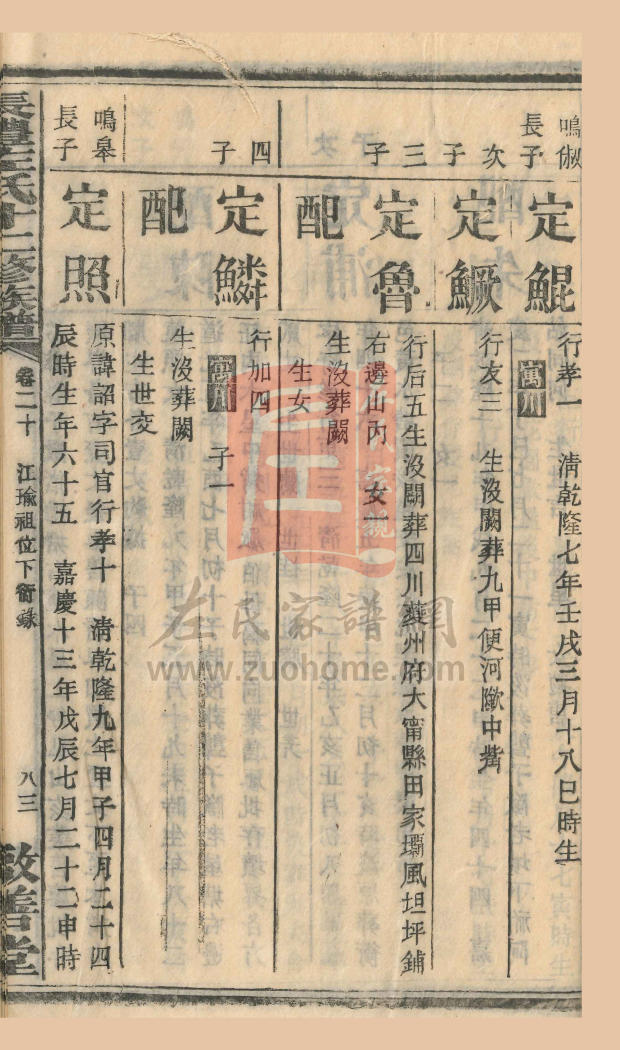 鳴俶
長子
定鯤
行孝一 清乾隆七年壬戌三月十八巳時生
寓川
次子
定鱖
行友三 生沒闕葬九甲便河墩中嘴
三子
定魯
行后五生沒闕葬四川夔州府大甯縣田家壩風坦坪鋪
右邊山內 女一
配
生沒葬闕
生女
四子
定鱗
行加四
寓川 子一
配
生沒葬闕
生世交
鳴皋
長子
定照
原諱詔字司官行孝十 清乾隆九年甲子四月二十四
辰時生年六十五 嘉慶十三年戊辰七月二十二申時
長豊左氏十二修族譜
卷二十 江瑜祖位下齒錄
八三
敦善堂
左氏家譜網
www.zuohome.com